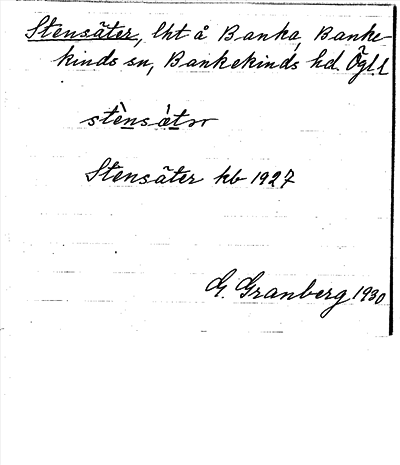 Stensäter, lht å Banka, Banke-
kinds sn, Bankekinds hd. Ögl.
stènsæ̀tər
Stensäter kb 1927
G. Granberg 1930